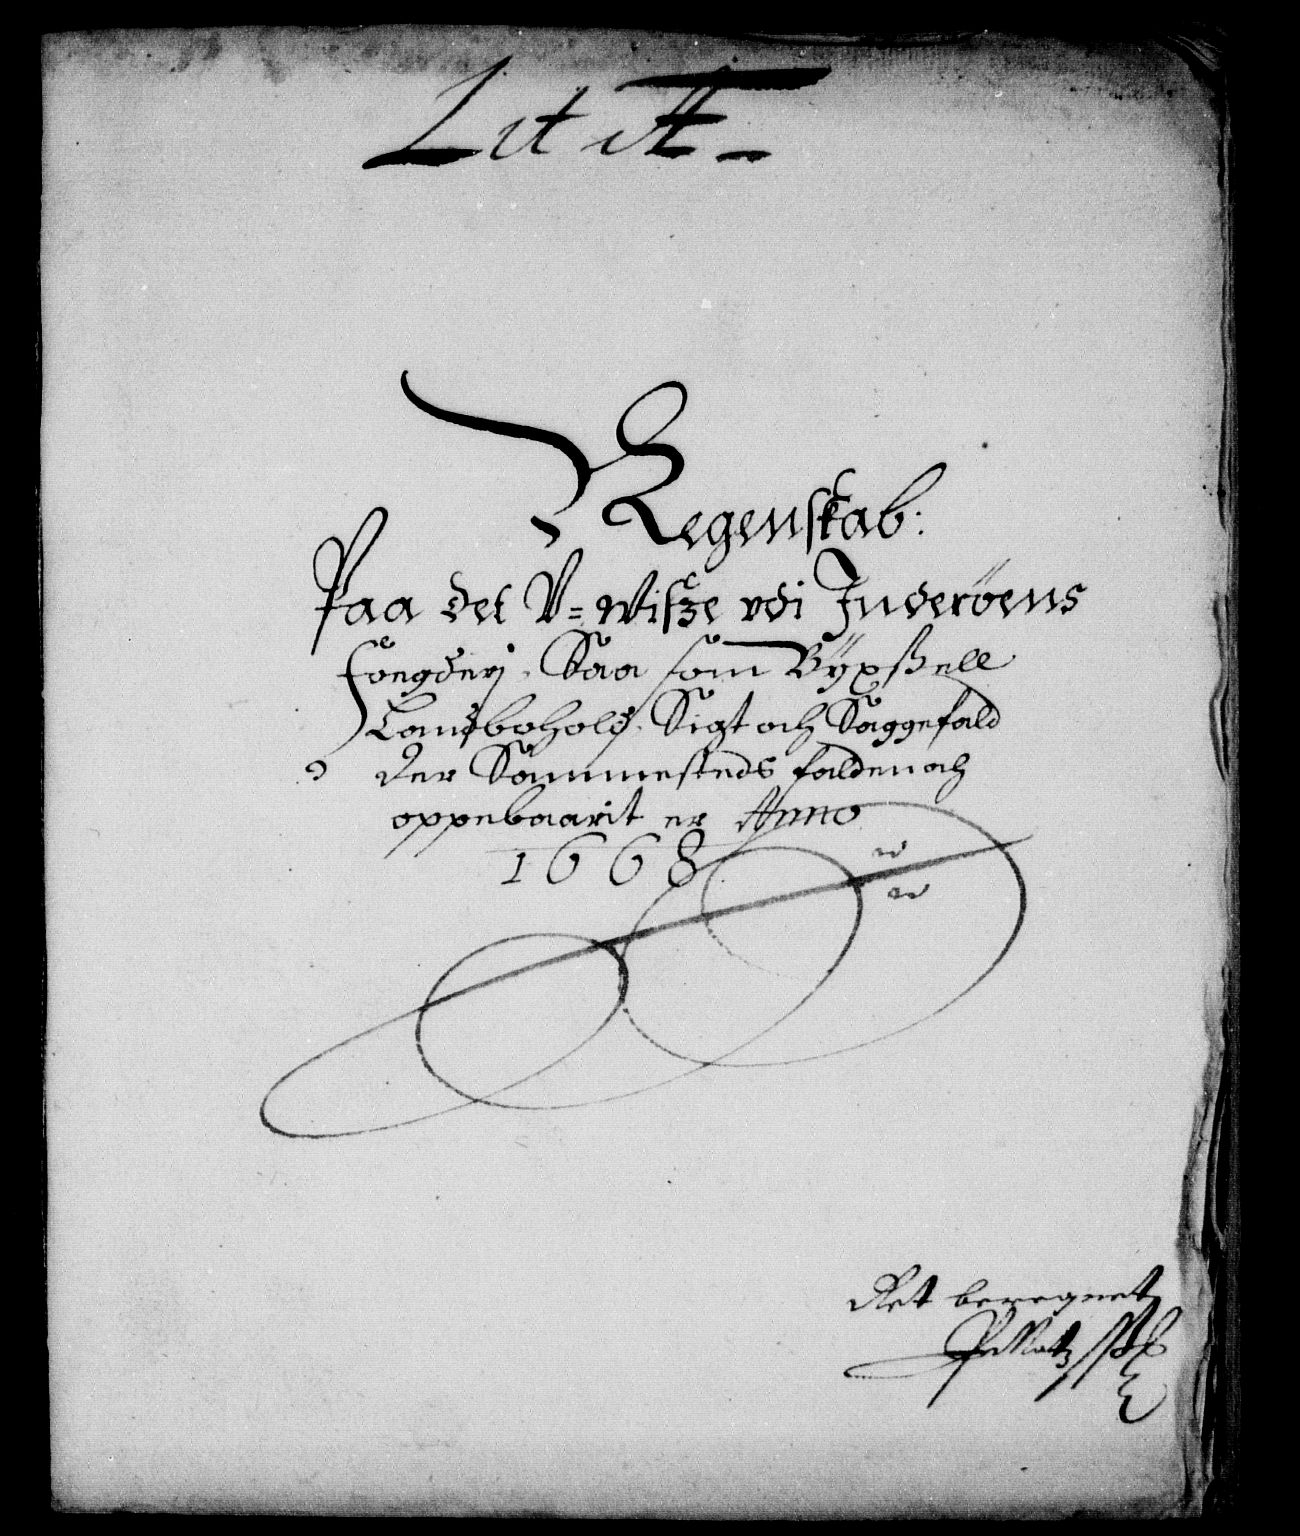 Lit A
Regenskab:
Paa det V-wisze vdi Inderöens
foegderj. Saa som Bÿxßell
Landboholdꝭ. Sigt och Saggefald
der Sammesteds falden och
oppebaarit er Anno
1668
Ret beregnet